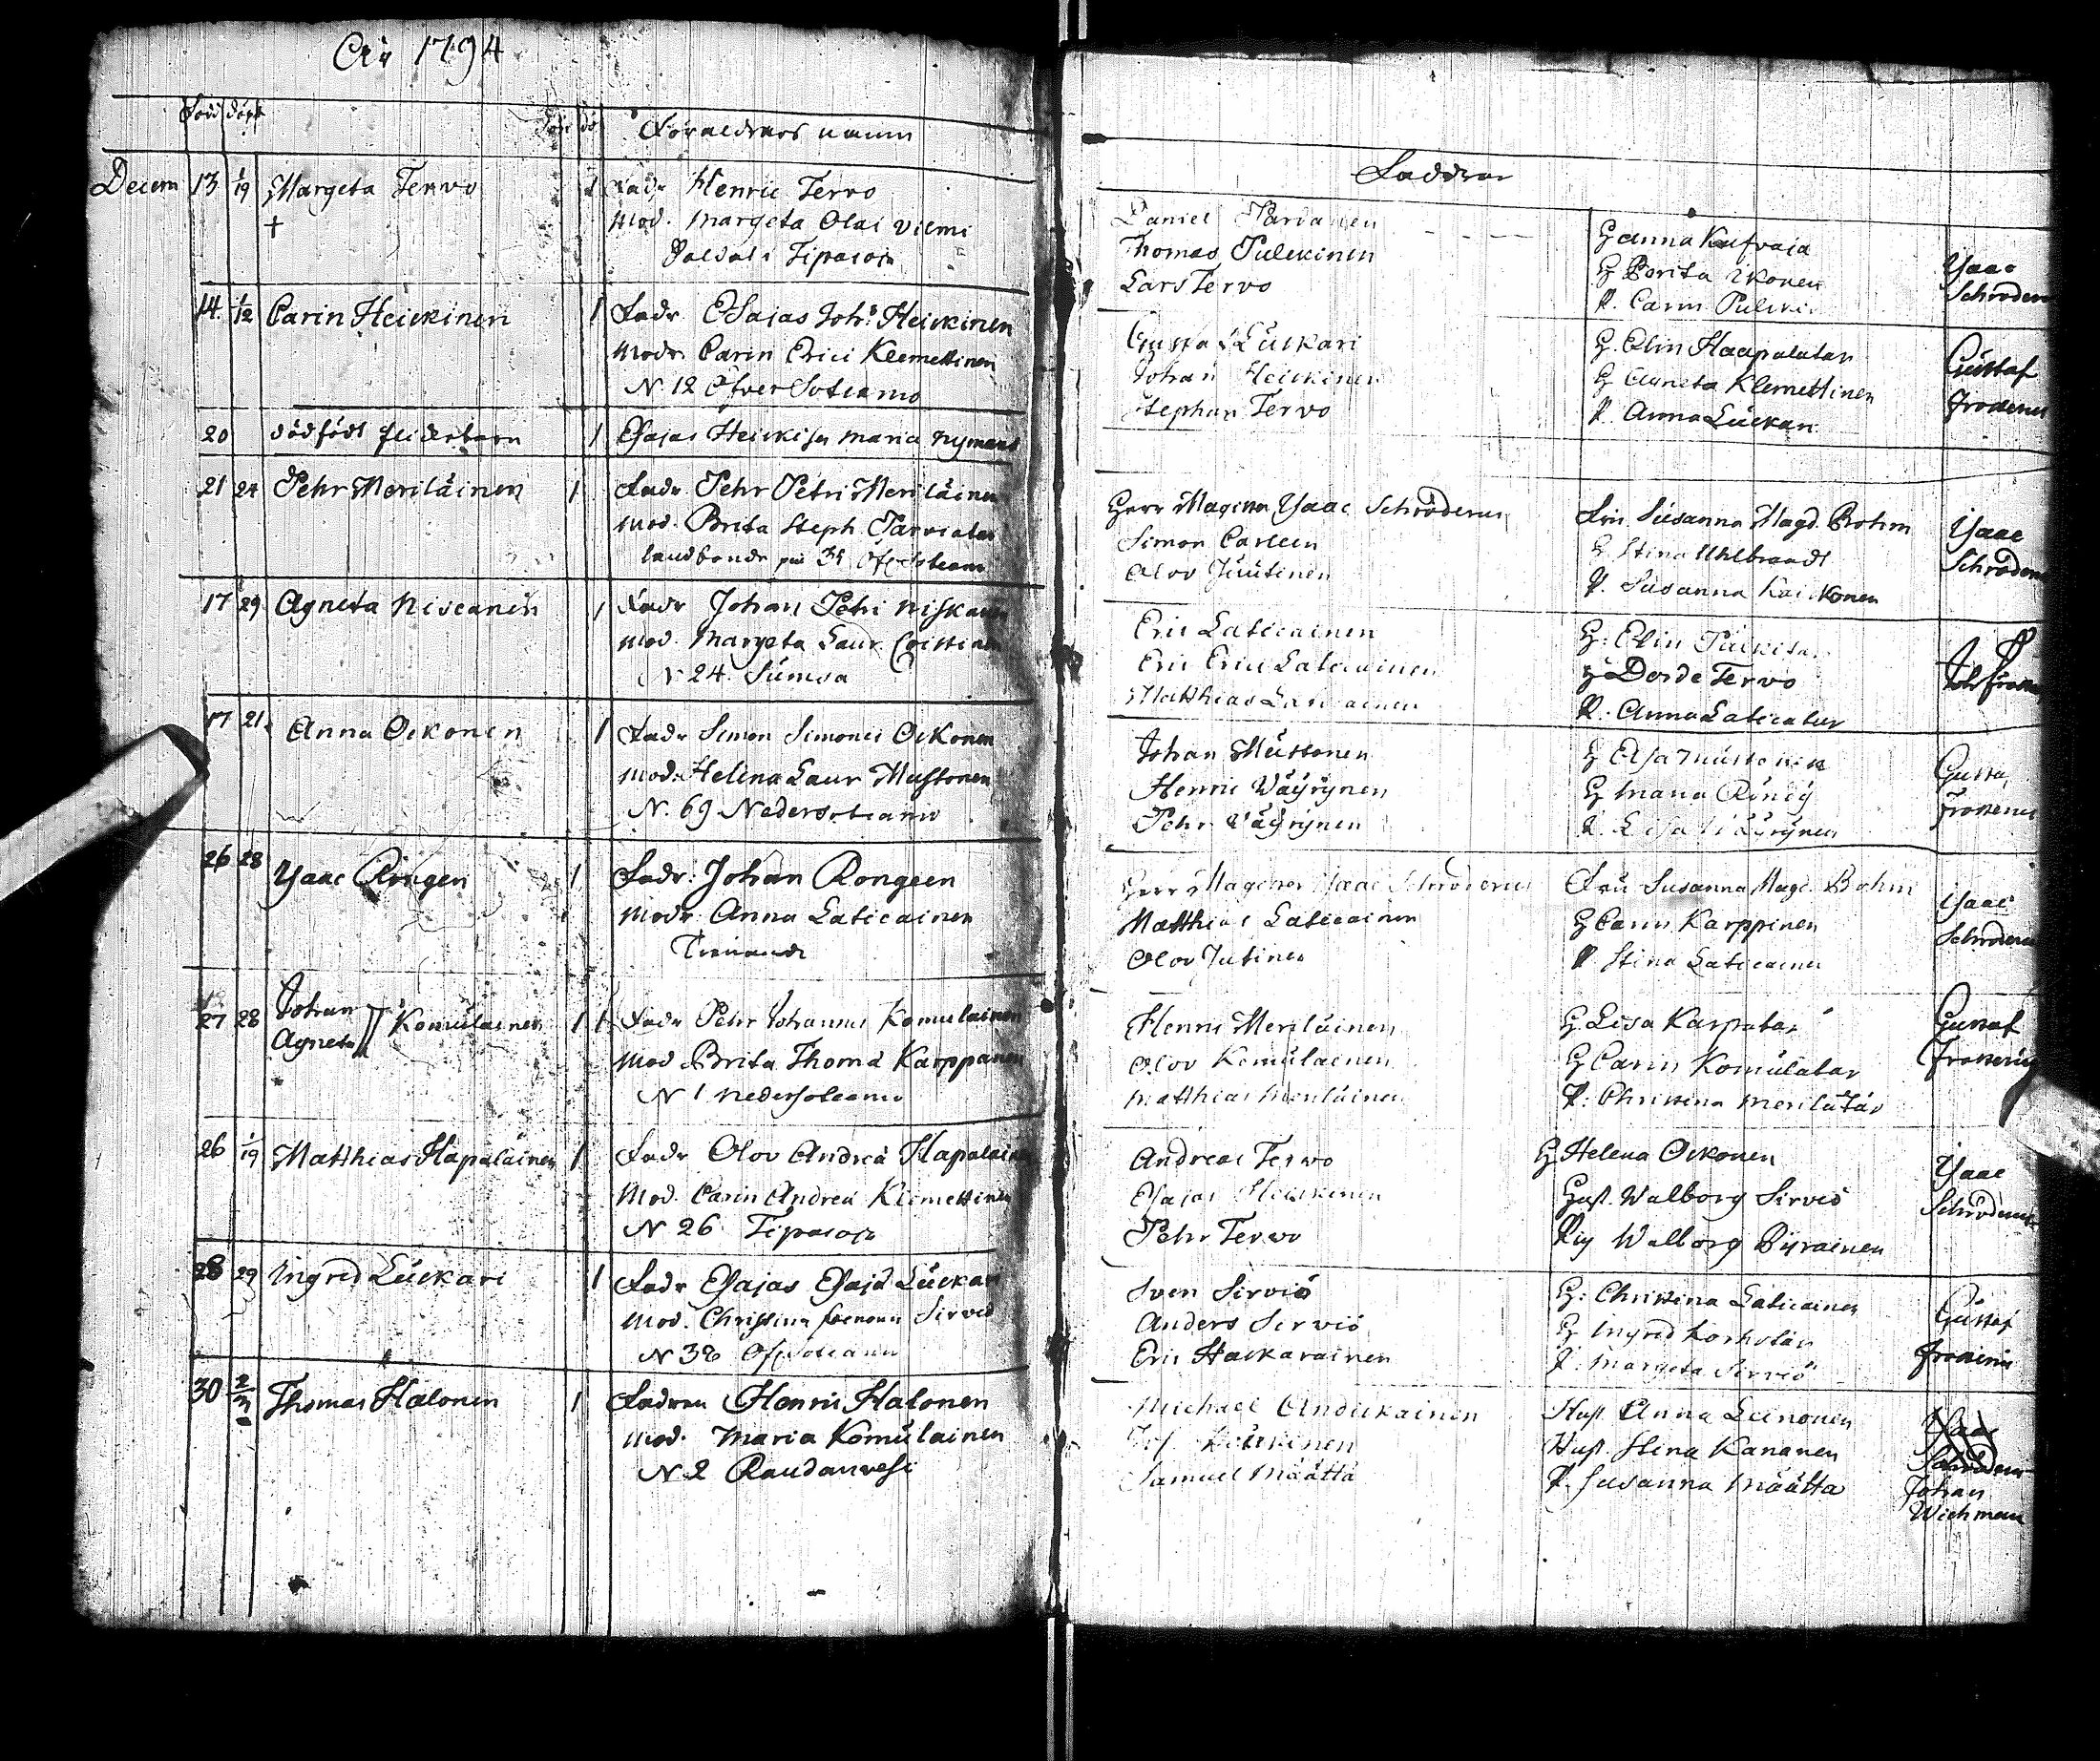 År 1794
Född döpt
Föräldrars namn
Decem 13 1/19 Margeta Tervo 1 Fadr Henric Tervo
† Mod. Margeta Olai
Tipasoja
14 1/12 Carin Heickinen 1 Fadr Esajas Joh: Heickinen
Modr. Carin Erici Klemettinen
N. 12 Öfver Sotcamo
20 dödfödt 1 Esajas Maria Nyman
21 24 Pehr Meriläinen 1 Fadr Pehr Petri Meriläinen
Mod. Brita Steph.
landbonde på
17 29 Agneta Niscanen 1 Fadr Johan Petri Niskanen
Mod. Margeta Laur.
N 24. Sumsa
17 21 Anna Ockonen 1 Fadr Simon Simonis Ockonen
Modr Helena Laur Mustonen
N. 69 Nedersotcamo
26 28 Ysaac Röngen 1 Fadr: Johan Rongeen
Modr. Anna Laticainen
27 28 Johan Agneta Komulainen 1 1 Fadr Pehr Johannis Komulainen
Mod Brita Thomæ Karppanen
N 1 Nedersotcamo
26 1/19 Matthias Hapalainen 1 Fadr Olov Andreæ Hapalainen
Mod. Carin Andreæ Klemettinen
N 26 Tipasoja
28 29 Ingrid Luckari 1 Fadr Esajas Esajæ Luckari
Mod. Christina Sirviö
N 38
30 2/3 Thomas Halonen 1 Fadren Henric Halonen
Mod. Maria Komulainen
N 2 Raudanvesi
Faddrar
Daniel
Thomas Pulckinen
Lars Tervo
H Anna Kufvaja
H Brita Ikonen
P. Carin
Ysaac
Schroderus
Gustaf Luckari
Johan Heickinen
Stephan Tervo
H. Elin Haapalatar
H Agneta Klemettinen
P. Anna Luckari
Gustaf
Frosterus
Herr Magister Ysaac Schroderus
Simon Carleen
Olov Juutinen
Fru Susanna Magd. Bohm
H Stina Uhlbrandt
P. Susanna
Ysaac
Schroderus
Eric Laticainen
Eric Erici Laticainen
Matthias Laticainen
H. Elin
H Dorde Tervo
P. Anna Laticatar
Johan Mustonen
Henric Wäyrynen
Pehr Väyrynen
H Elsa Mustonen
H Maria
P. Lisa Wäyrynen
Gustaf
Frosterus
Herr Magister Ysaac Schroderus
Matthias Laticainen
Olov Jutinen
Fru Susanna Magd. Bohm
H Carin Karppinen
P Stina Laticainen
Ysaac
Schroderus
Henric Meriläinen
Olov Komulainen
Matthias Meriläinen
H. Lisa Karpatar
H Carin Komulatar
P. Christina Merilätär
Gustaf
Frosterus
Andreas Tervo
Esajas Heickinen
Pehr Tervo
H Helena Ockonen
Hust. Walborg Sirviö
Pig Walborg
Ysaac
Schroderus
Sven Sirviö
Anders Sirviö
Eric Hackarainen
H. Christina Laticainen
H Ingrid Korholar
P. Margeta Sirviö
Gustaf
Frosterus
Michael Andickainen
Samuel Määttä
Hust. Anna Leinonen
Hust. Stina Kananen
P. Susanna Määttä
Ysaac
Schroderus
Johan
Wichman